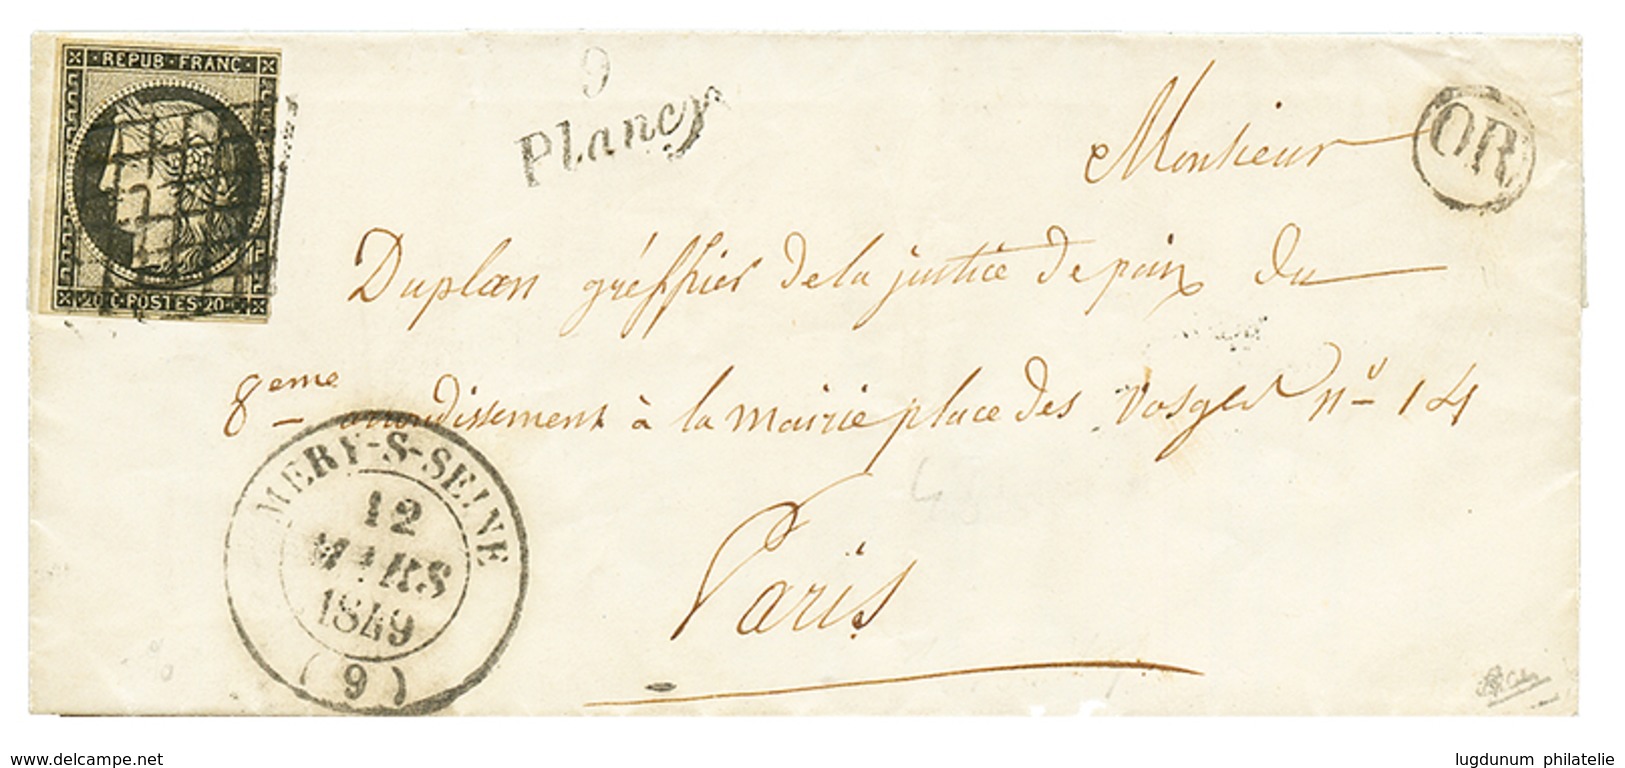 REPUB·FRANC·
20 C·POSTES·20 C·
9
Plancy
OR
Monsieur
Duplan gréffier de la justice de paix du
8eme arrondissement à la mairie place des Vosges n° 14
Paris
MERY-S-SEINE
12
MARS
1849
(9)
www.delcampe.net
lugdunum philatelie